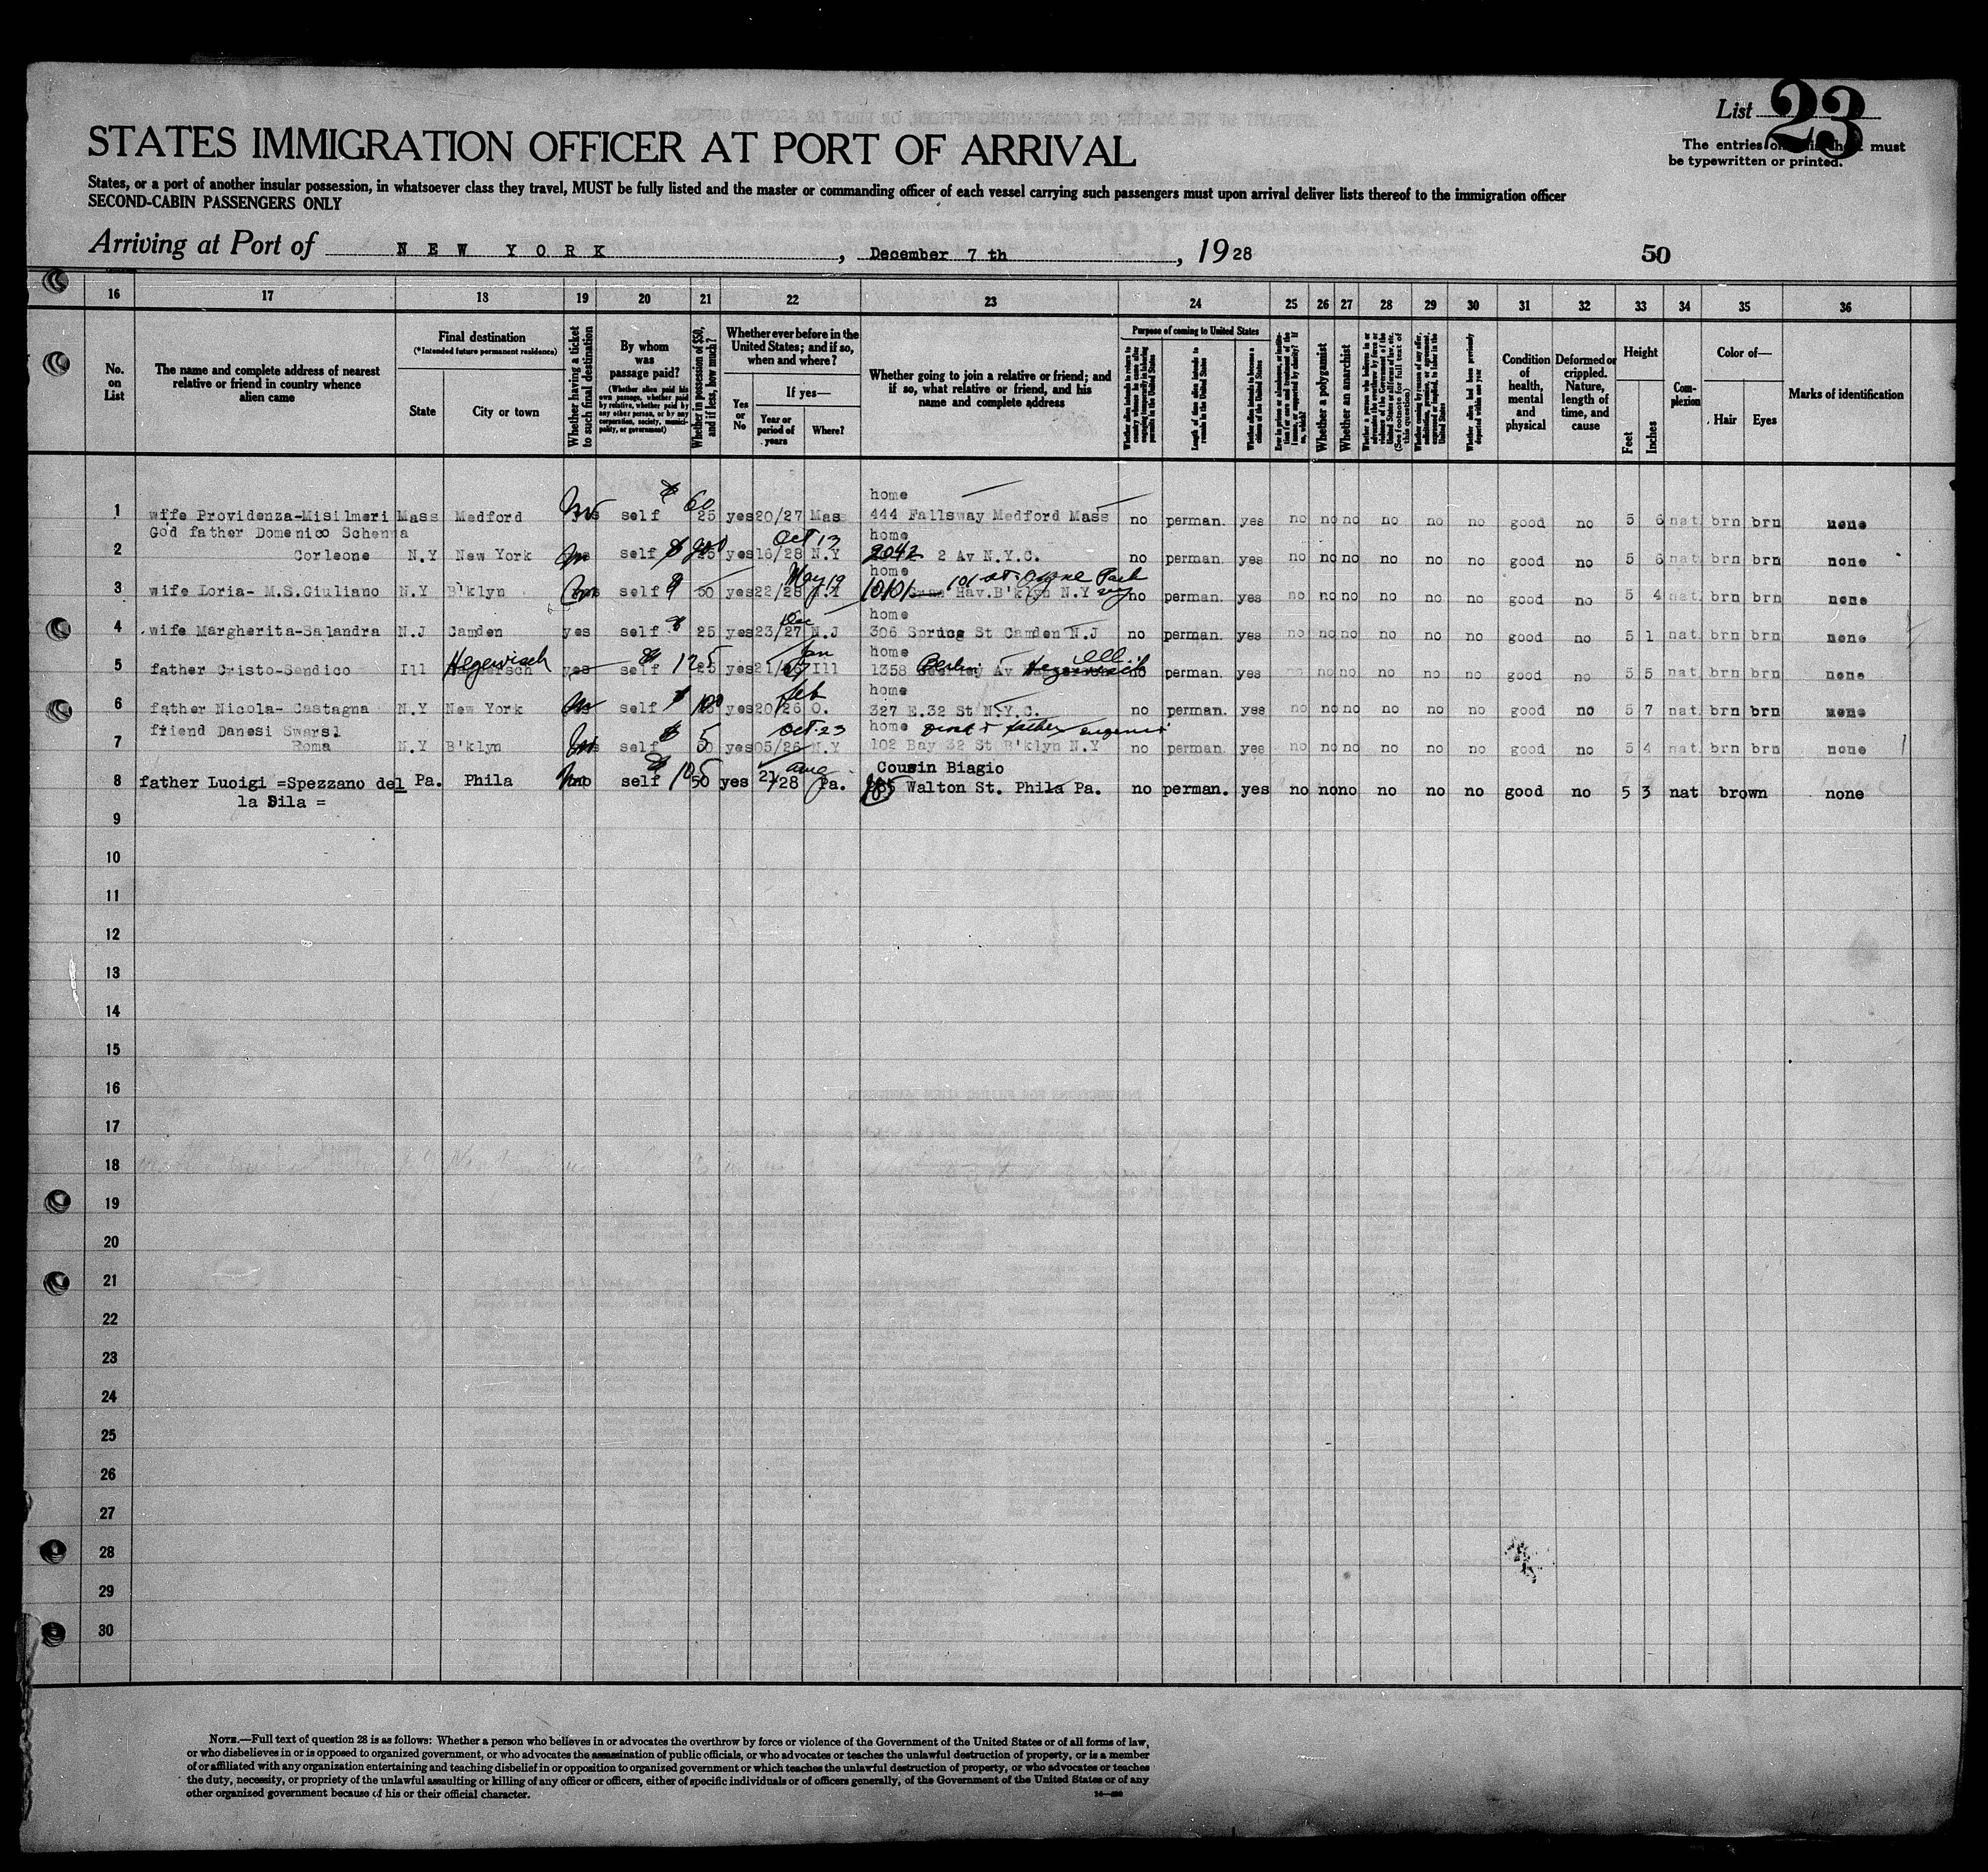 List 23
The entries on this sheet must
be typewritten or printed.
STATES IMMIGRATION OFFICER AT PORT OF ARRIVAL
States, or a port of another insular possession, in whatsoever class they travel, MUST be fully listed and the master or commanding officer of each vessel carrying such passengers must upon arrival deliver lists thereof to the immigration officer
SECOND-CABIN PASSENGERS ONLY
Arriving at Port of NEW YORK, December 7 th, 1928
50
16 17 18 19 20 21 22 23 24 25 26 27 28 29 30 31 32 33 34 35 36
No. on List
The name and complete address of nearest relative or friend in country whence alien came
Final destination
(*Intended future permanent residence)
State
City or town
Whether having a ticket to such final destination
By whom was passage paid?
(Whether alien paid his own passage, whether paid by relative, whether paid by any other person, or by any corporation, society, municipality, or government)
Whether in possession of $50, and if less, how much?
Whether ever before in the United States; and if so, when and where?
Yes or No
If yes—
Year or period of years
Where?
Whether going to join a relative or friend; and if so, what relative or friend, and his name and complete address
Purpose of coming to United States
Length of time alien intends to remain in the United States
Whether alien intends to become a citizen of the United States
Whether a polygamist
Whether an anarchist
(See footnote for full text of this question)
Whether alien had been previously deported within one year
Condition of health, mental and physical
Deformed or crippled. Nature, length of time, and cause
Height
Feet
Inches
Complexion
Color of—
Hair
Eyes
Marks of identification
home
1 wife Providenza-Misilmeri Mass Medford self $ 60 25 yes 20/27 Mass 444 Fallsway Medford Mass no perman. yes no no no no no no good no 5 6 nat brn brn none
God father Domenico Schenna Oct 13 home
2 Corleone N.Y New York self $ yes 16/28 N.Y 2042 2 Av N.Y.C. no perman yes no no no no no no good no 5 6 nat brn brn none
May 19 home 101 st Ozone Park
3 wife Loria- M.S.Giuliano N.Y B'klyn self $ 50 yes 22/28 N.Y 10101 Hav.B'klyn N.Y no perman. yes no no no no no no good no 5 4 nat brn brn none
Dec home
4 wife Margherita-Salandra N.J Camden yes self $ 25 yes 23/27 N.J 306 Spring St Camden N.J no perman. yes no no no no no no good no 5 1 nat brn brn none
Jan home Ill.
5 father Cristo-Sendico Ill Hegewisch yes self $ 125 yes Ill 1358 Av no perman. yes no no no no no no good no 5 5 nat brn brn none
feb home
6 father Nicola- Castagna N.Y New York self $ 100 yes 20/26 O. 327 E.32 St N.Y.C. no perman. yes no no no no no no good no 5 7 nat brn brn none
friend Danesi Swarsl Oct-23 home father
7 Roma N.Y B'klyn self $ 5 yes 05/26 N.Y 102 Bay 32 St B'klyn N.Y no perman. yes no no no no no no good no 5 4 nat brn brn none
Aug Cousin Biagio
8 father Luoigi =Spezzano del Pa. Phila no self $ 105 50 yes 21/28 Pa. Walton St. Phila Pa. no perman. yes no no no no no no good no 5 3 nat brown none
la Sila =
9
10
11
12
13
14
15
16
17
18
19
20
21
22
23
24
25
26
27
28
29
30
NOTE.—Full text of question 28 is as follows: Whether a person who believes in or advocates the overthrow by force or violence of the Government of the United States or of all forms of law,
or who disbelieves in or is opposed to organized government, or who advocates the assassination of public officials, or who advocates or teaches the unlawful destruction of property, or is a member
of or affiliated with any organization entertaining and teaching disbelief in or opposition to organized government or which teaches the unlawful destruction of property, or who advocates or teaches
the duty, necessity, or propriety of the unlawful assaulting or killing of any officer or officers, either of specific individuals or of officers generally, of the Government of the United States or of any
other organized government because of his or their official character.